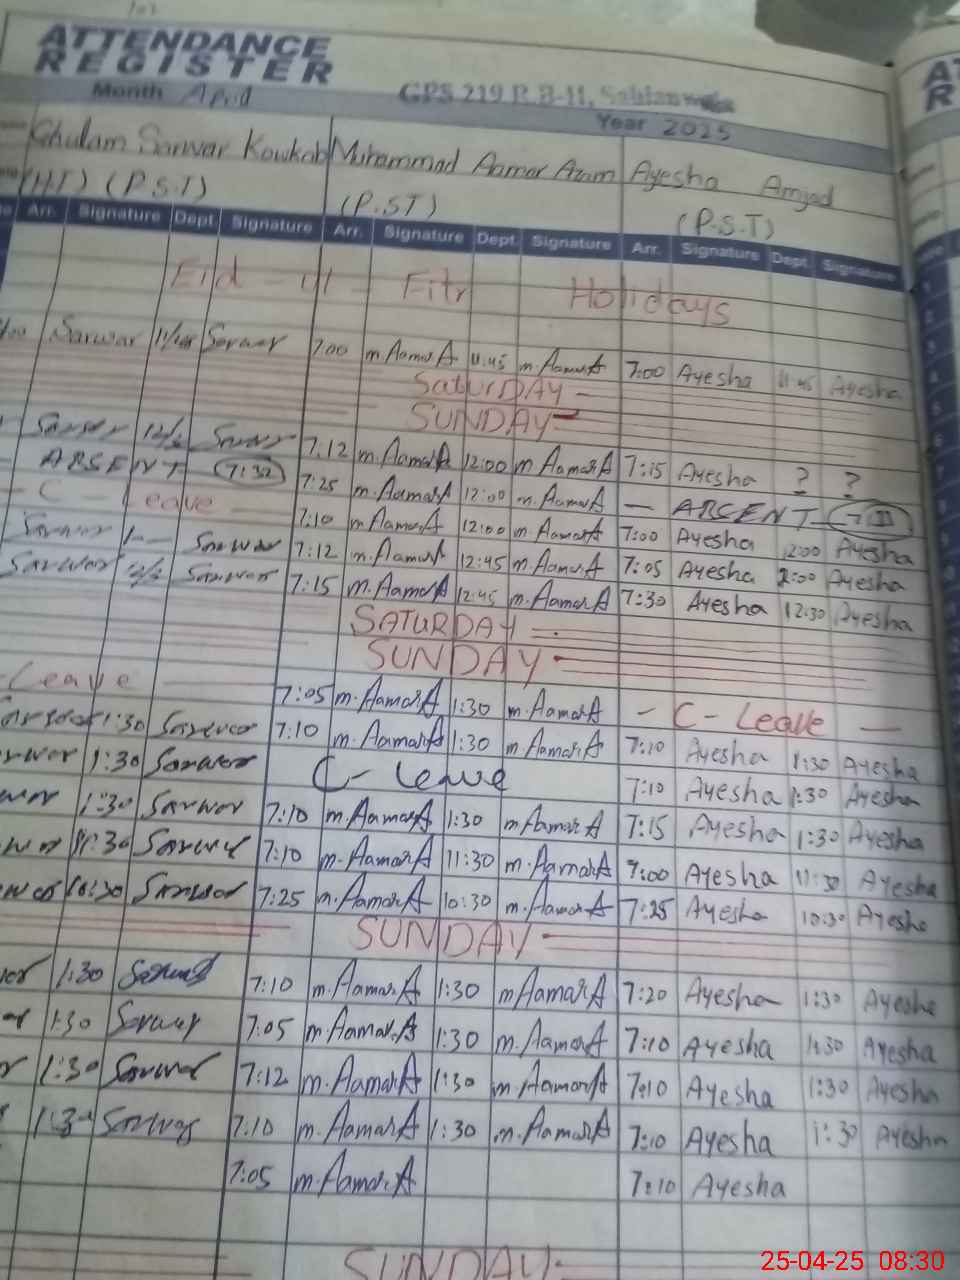 ATTENDANCE
REGISTER
Month April
GPS 219 R.B-II,
Year 2025
Ghulam Sarwar Koukab Muhammad Aamar Azam Ayesha Amjad
(H.T) (P.S.T) (P.ST) (P.S.T)
Arr. Signature Dept Signature Arr. Signature Dept. Signature Arr. Signature Dept. Signature
Eid - ul - Fitr Holidays
Sarwar Sarwar 7:00 m.AamarA 11:45 m.AamarA 7:00 Ayesha 11:45 Ayesha
SATURDAY -
SUNDAY -
Sarwar Sarwar 7:12 m.AamarA 12:00 m.AamarA 7:15 Ayesha ? ?
ABSENT 7:32 7:25 m.AamarA 12:00 m.AamarA - ABSENT
- C - Leave 7:10 m.AamarA 12:00 m.AamarA 7:00 Ayesha 12:00 Ayesha
Sarwar Sarwar 7:12 m.AamarA 12:45 m.AamarA 7:05 Ayesha 2:00 Ayesha
Sarwar Sarwar 7:15 m.AamarA 12:45 m.AamarA 7:30 Ayesha 12:30 Ayesha
SATURDAY -
SUNDAY -
Leave 7:05 m.AamarA 1:30 m.AamarA - C - Leave -
Sarwar 1:30 Sarwar 7:10 m.AamarA 1:30 m.AamarA 7:10 Ayesha 1:30 Ayesha
rwar 1:30 Sarwar C - Leave 7:10 Ayesha 1:30 Ayesha
war 1:30 Sarwar 7:10 m.AamarA 1:30 m.AamarA 7:15 Ayesha 1:30 Ayesha
war 11:30 Sarwar 7:10 m.AamarA 11:30 m.AamarA 7:00 Ayesha 11:30 Ayesha
war 10:30 Sarwar 7:25 m.AamarA 10:30 m.AamarA 7:25 Ayesha 10:30 Ayesha
SUNDAY -
war 1:30 Sarwar 7:10 m.AamarA 1:30 m.AamarA 7:20 Ayesha 1:30 Ayesha
ar 1:30 Sarwar 7:05 m.AamarA 1:30 m.AamarA 7:10 Ayesha 1:30 Ayesha
r 1:30 Sarwar 7:12 m.AamarA 1:30 m.AamarA 7:10 Ayesha 1:30 Ayesha
1:30 Sarwar 7:10 m.AamarA 1:30 m.AamarA 7:10 Ayesha 1:30 Ayesha
7:05 m.AamarA 7:10 Ayesha
SUNDAY -
25-04-25 08:30